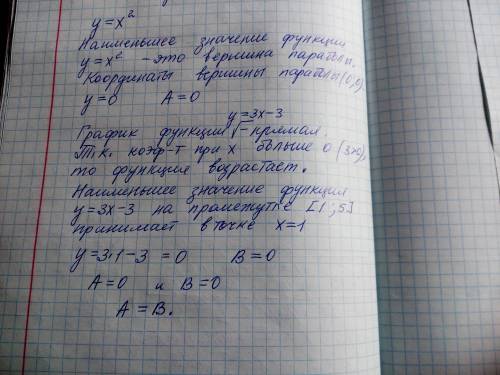 y=x²
Наименьшее значение функции
y=x² - это вершина параболы.
Координаты вершины параболы (0,0)
y=0 A=0
y=3x-3
График функции - прямая.
Т.к. коэф-т при x больше 0 (3>0),
то функция возрастает.
Наименьшее значение функция
y=3x-3 на промежутке [1;5]
принимает в точке x=1
y=3·1-3=0 B=0
A=0 и B=0
A=B.